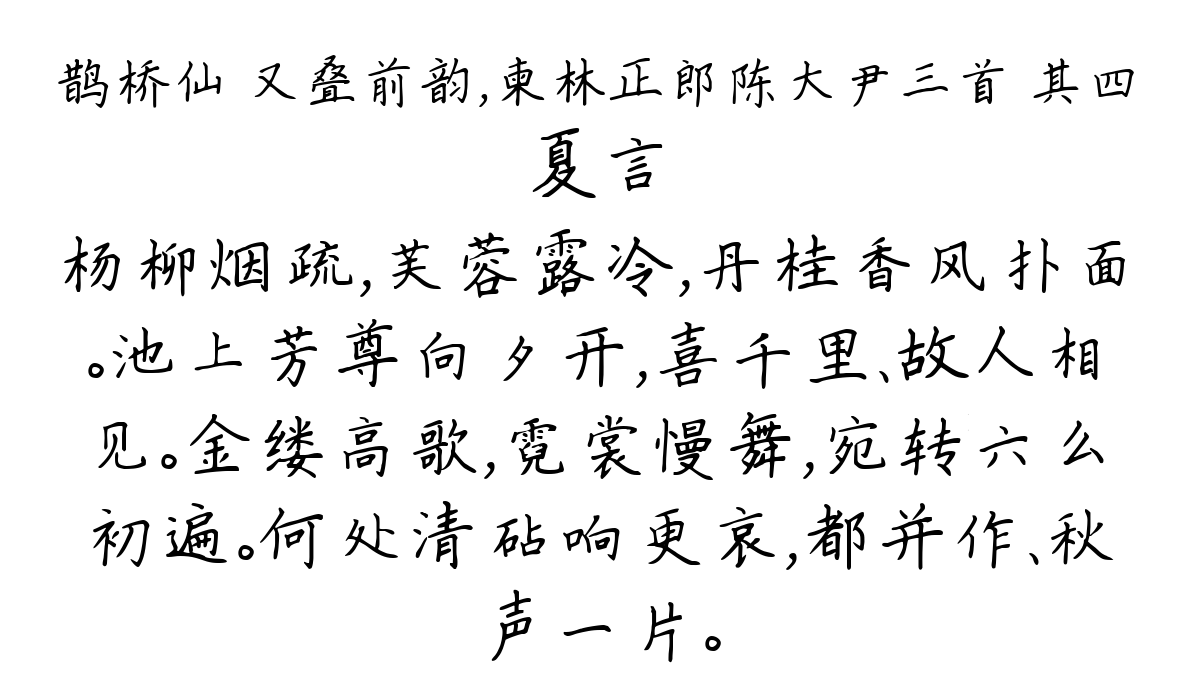 鹊桥仙 又叠前韵,柬林正郎陈大尹三首 其四
夏言
杨柳烟疏,芙蓉露冷,丹桂香风扑面
。池上芳尊向夕开,喜千里、故人相
见。金缕高歌,霓裳慢舞,宛转六么
初遍。何处清砧响更哀,都并作、秋
声一片。